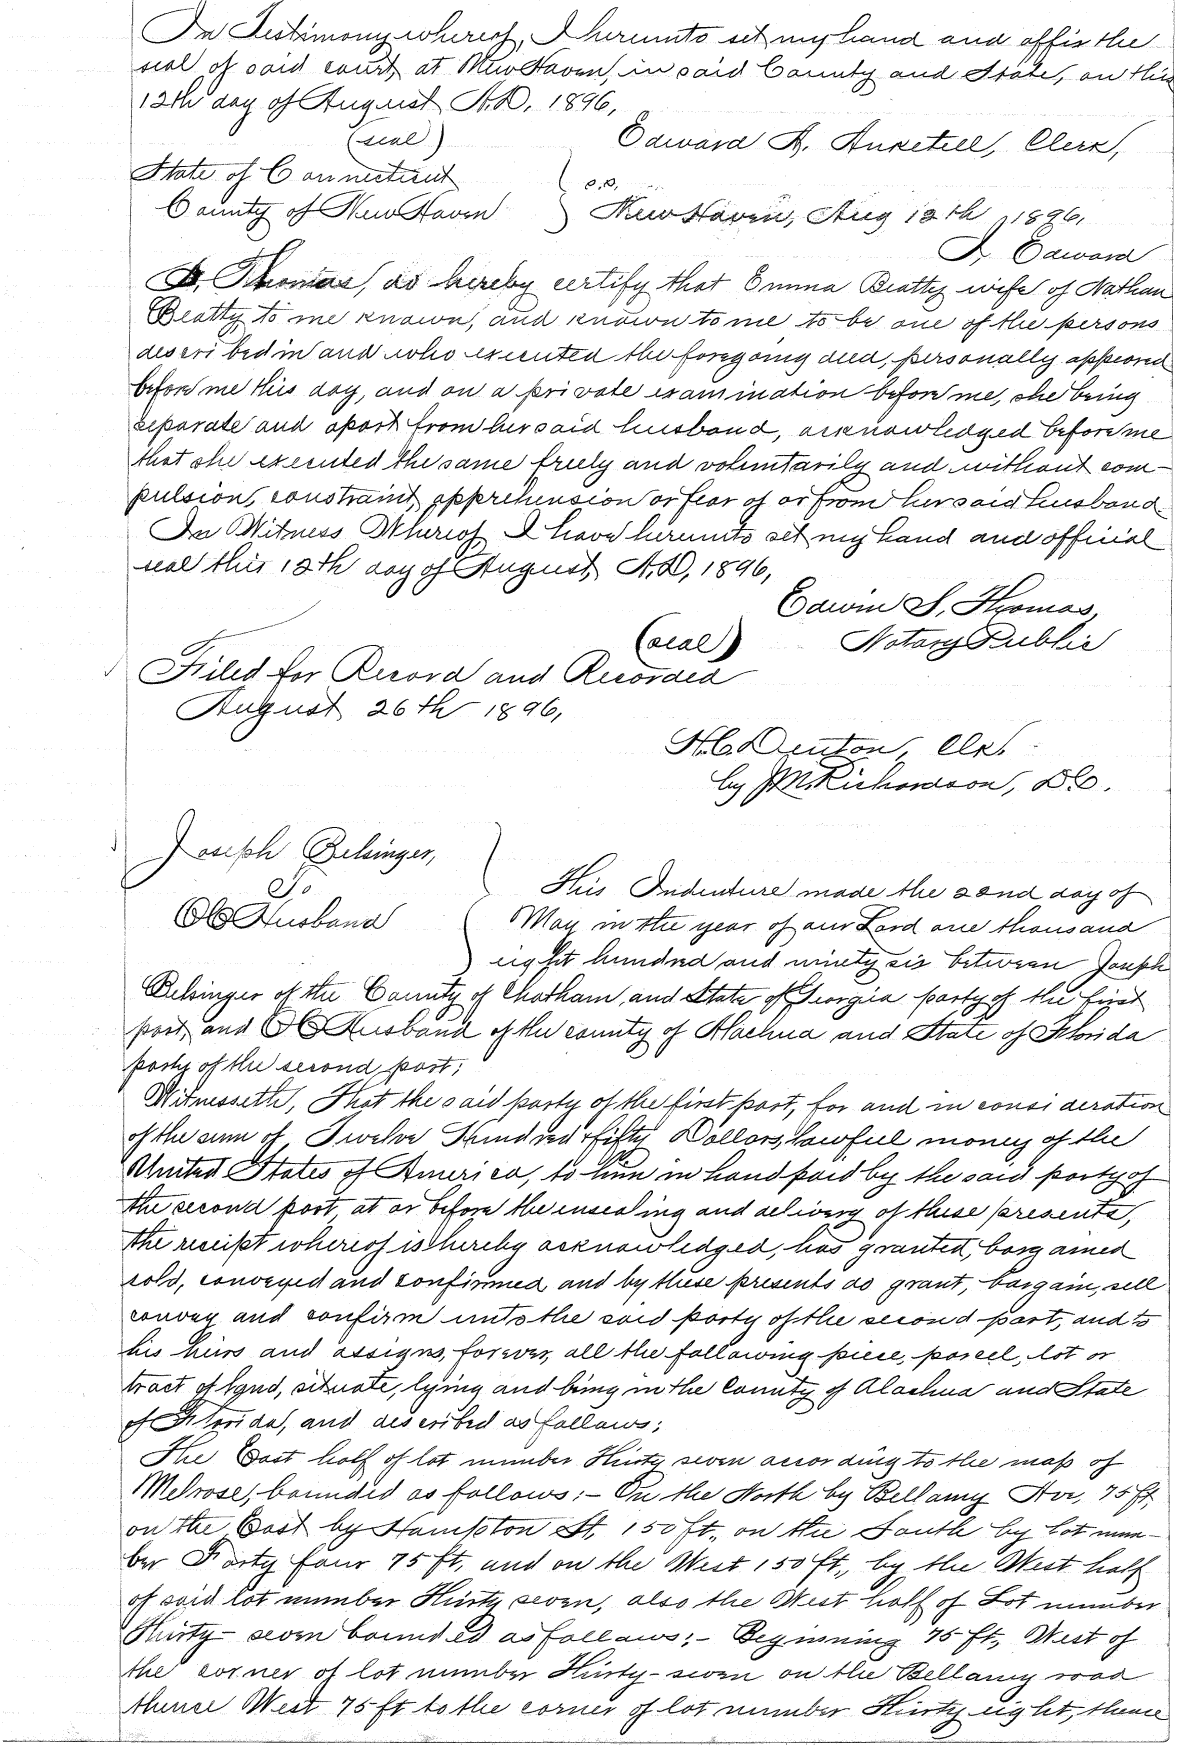 In Testimony whereof, I hereunto set my hand and affix the
seal of said court, at New Haven, in said County and State, on this
12th day of August A.D. 1896,
(seal)
Edward A. Anketell, Clerk,
State of Connecticut
County of New Haven
s.s.
New Haven, Aug 12th 1896,
I, Edward
S. Thomas, do hereby certify that Emma Beatty wife of Nathan
Beatty to me known, and known to me to be one of the persons
described in and who executed the foregoing deed, personally appeared
before me this day, and on a private examination before me, she being
separate and apart from her said husband, acknowledged before me
that she executed the same freely and voluntarily and without com-
pulsion, constraint, apprehension or fear of or from her said husband
In Witness Whereof I have hereunto set my hand and official
seal this 12th day of August, A.D, 1896,
Edwin S, Thomas,
(seal) Notary Public
Filed for Record and Recorded
August 26th 1896,
H.C. Denton, Clk.
by J.M. Richardson, D.C.
Joseph Belsinger,
To
O C Husband
This Indenture made the 22nd day of
May in the year of our Lord one thousand
eight hundred and ninety six between Joseph
Belsinger of the County of Chatham, and State of Georgia party of the first
part, and O C Husband of the county of Alachua and State of Florida
party of the second part;
Witnesseth, That the said party of the first part, for and in consideration
of the sum of Twelve Hundred & fifty Dollars, lawful money of the
United States of America, to him in hand paid by the said party of
the second part, at or before the ensealing and delivery of these presents,
the receipt whereof is hereby acknowledged, has granted, bargained
sold, conveyed and confirmed and by these presents do grant, bargain, sell
convey and confirm unto the said party of the second part, and to
his heirs and assigns, forever, all the following piece, parcel, lot or
tract of land, situate, lying and being in the County of Alachua and State
of Florida, and described as follows;
The East half of lot number Thirty seven according to the map of
Melrose, bounded as follows:- On the North by Bellamy Ave, 75 ft,
on the East by Hampton St. 150 ft., on the South by lot num-
ber Forty four 75 ft, and on the West 150 ft., by the West half
of said lot number Thirty seven, also the West half of Lot number
Thirty- seven bounded as follows:- Beginning 75 ft, West of
the corner of lot number Thirty-seven on the Bellamy road
thence West 75 ft to the corner of lot number Thirty eight, thence